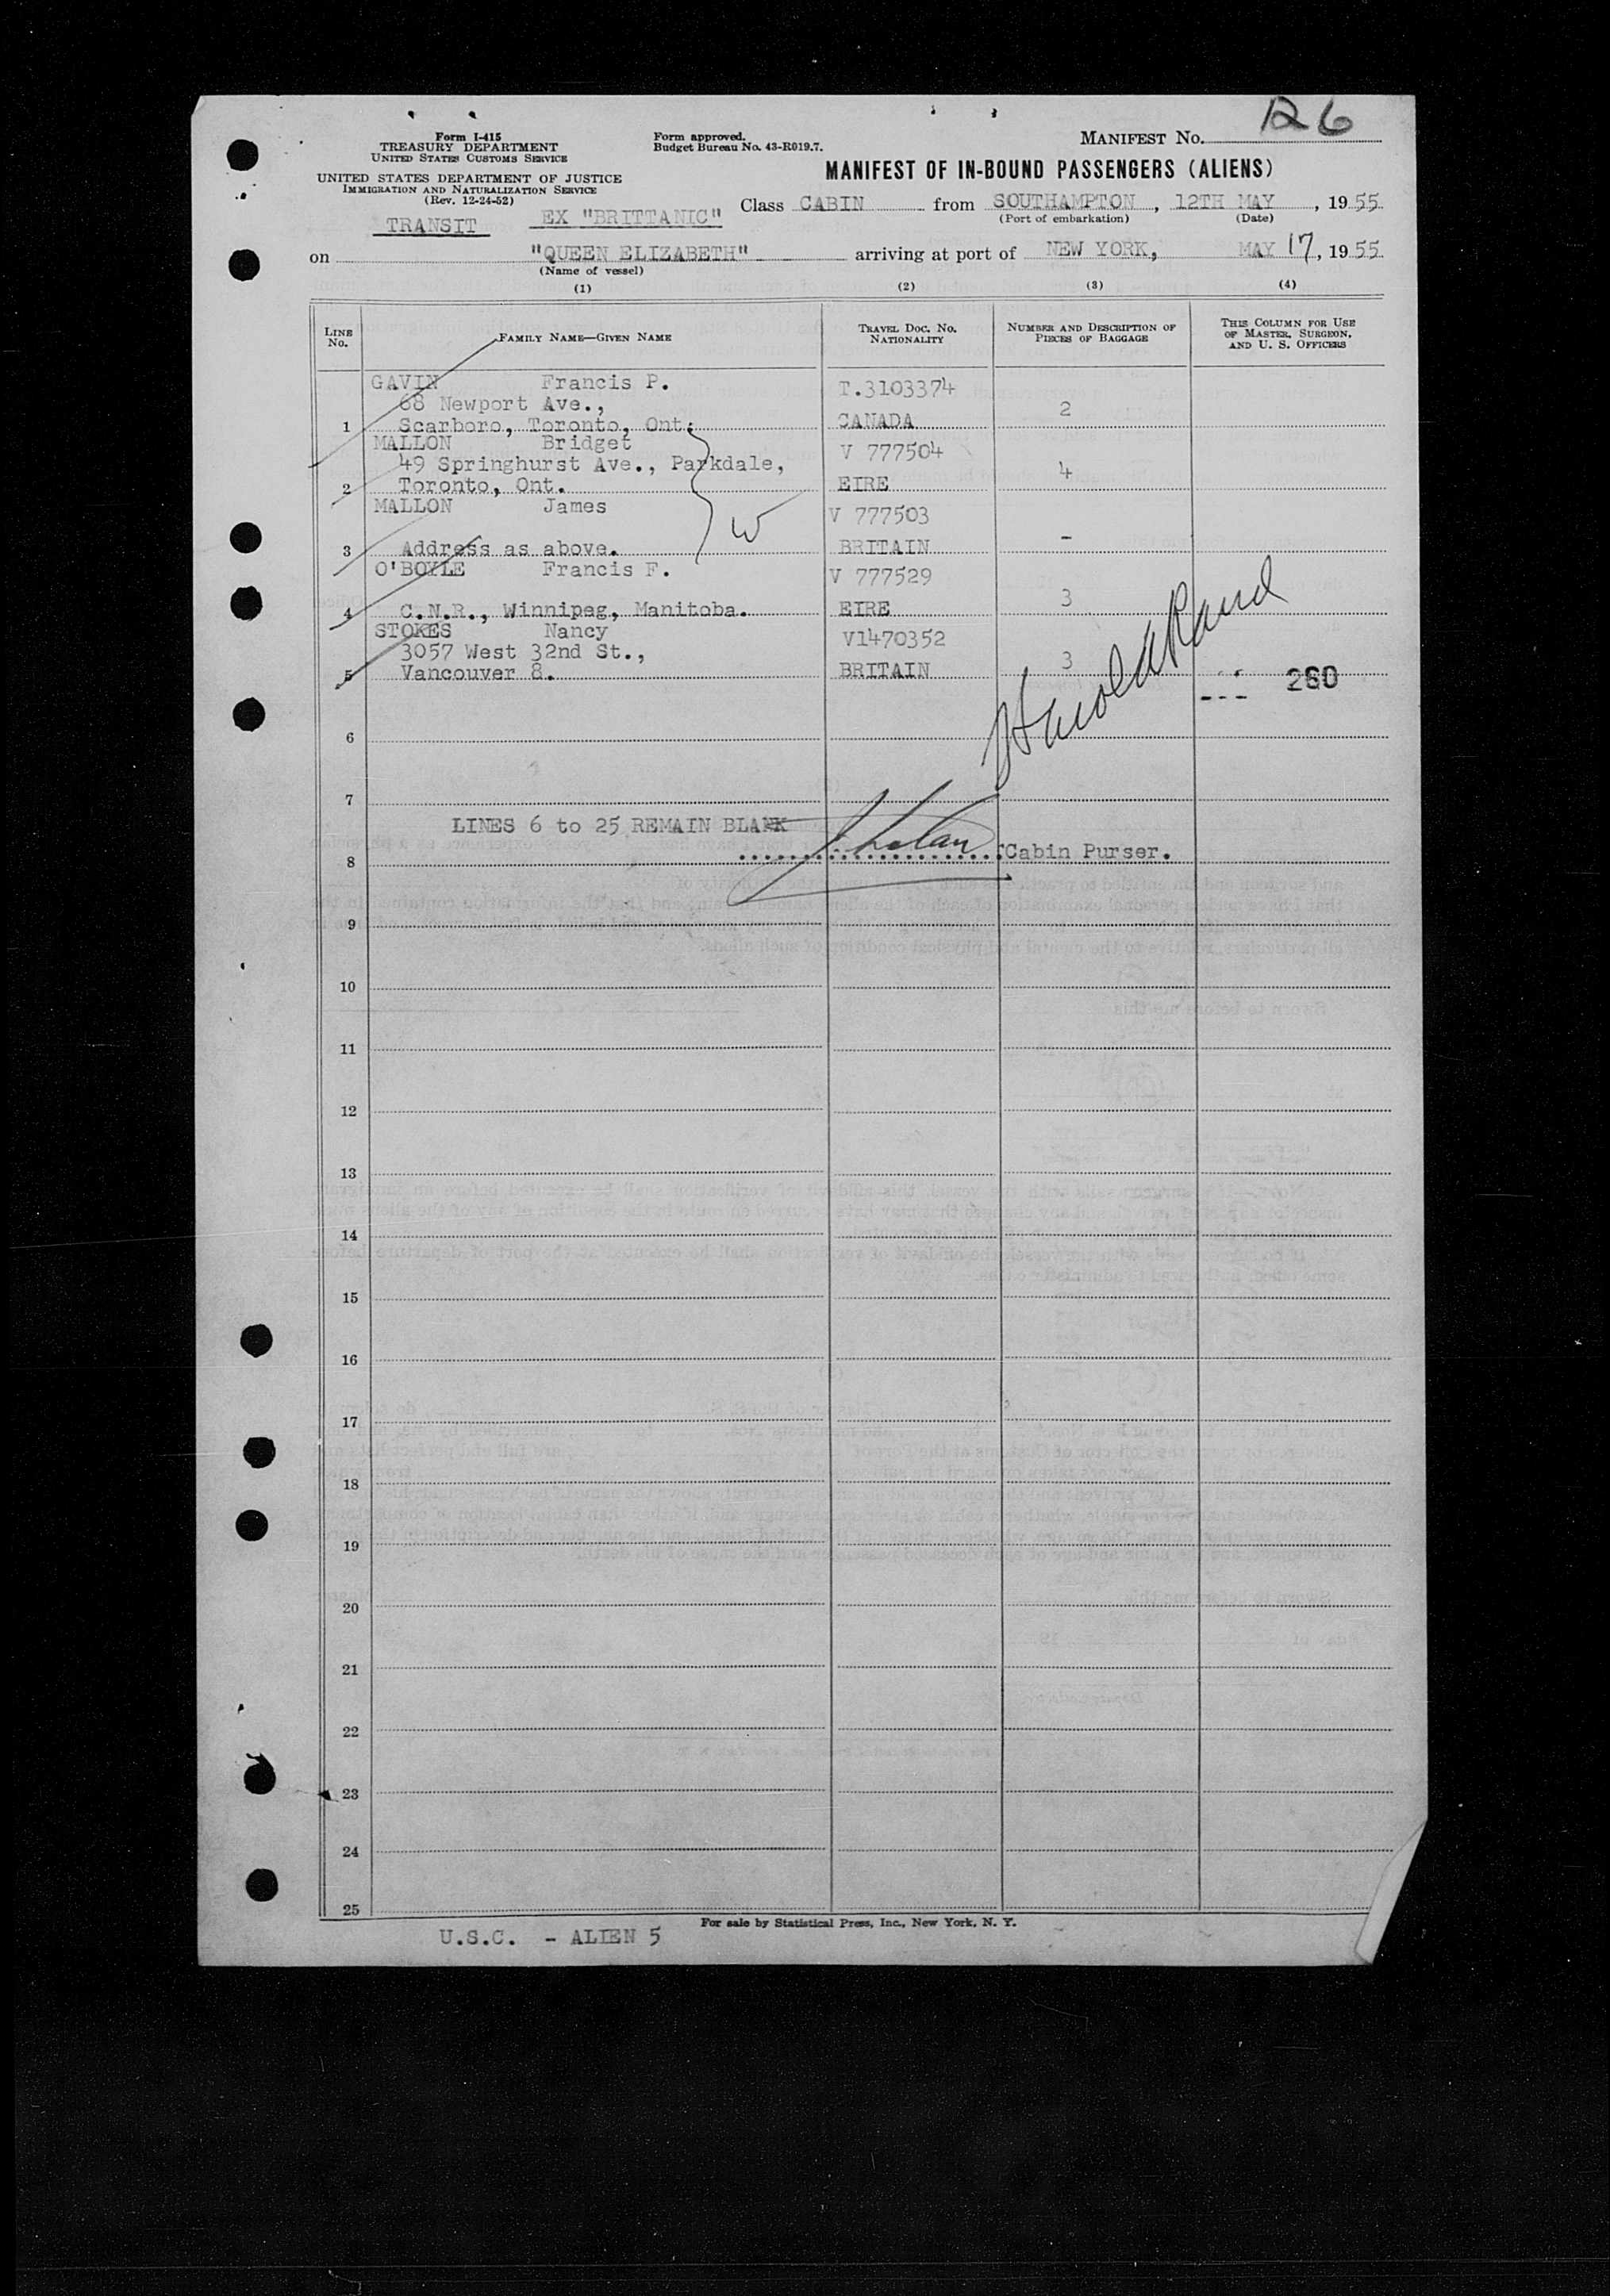 126
Form I-415
TREASURY DEPARTMENT
UNITED STATES CUSTOMS SERVICE
UNITED STATES DEPARTMENT OF JUSTICE
IMMIGRATION AND NATURALIZATION SERVICE
(Rev. 12-24-52)
Form approved.
Budget Bureau No. 43-R019.7.
MANIFEST No.
MANIFEST OF IN-BOUND PASSENGERS (ALIENS)
TRANSIT EX "BRITTANIC" Class CABIN from SOUTHAMPTON, 12TH MAY, 1955
(Port of embarkation) (Date)
on "QUEEN ELIZABETH" arriving at port of NEW YORK, MAY 17, 1955
(Name of vessel)
(1) (2) (3) (4)
LINE No. FAMILY NAME—GIVEN NAME TRAVEL DOC. No. NATIONALITY NUMBER AND DESCRIPTION OF PIECES OF BAGGAGE THIS COLUMN FOR USE OF MASTER, SURGEON, AND U. S. OFFICERS
GAVIN Francis P. T.3103374
68 Newport Ave., 2
1 Scarboro, Toronto, Ont. CANADA
MALLON Bridget V 777504
49 Springhurst Ave., Parkdale, 4
2 Toronto, Ont. EIRE
MALLON James V 777503
W
3 Address as above. BRITAIN -
O'BOYLE Francis F. V 777529
4 C.N.R., Winnipeg, Manitoba. EIRE 3
STOKES Nancy V1470352
3057 West 32nd St., 3
5 Vancouver 8. BRITAIN
--- 260
Harold A Rand
6
7
LINES 6 to 25 REMAIN BLANK
8 Cabin Purser.
9
10
11
12
13
14
15
16
17
18
19
20
21
22
23
24
25
For sale by Statistical Press, Inc., New York, N. Y.
U.S.C. - ALIEN 5